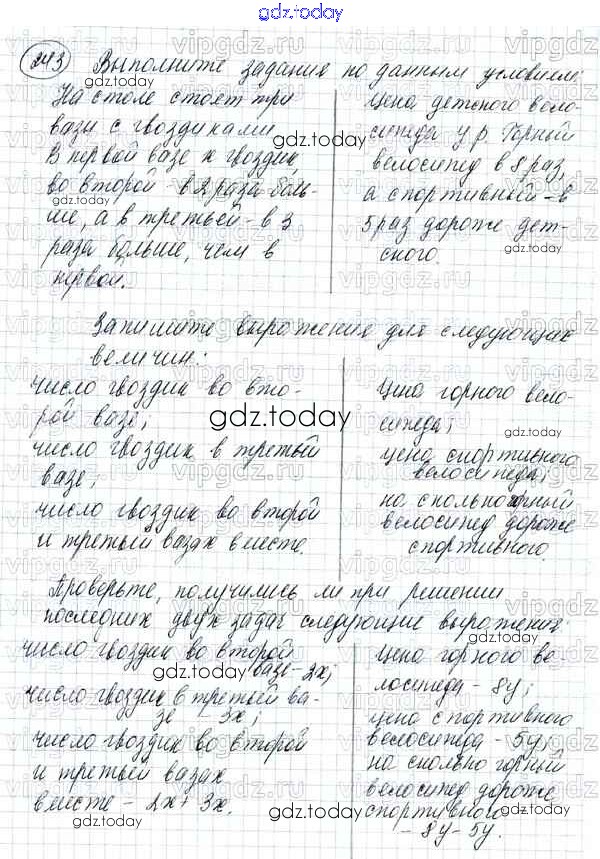 gdz.today
243 Выполните задания по данным условием:
На столе стоят три
вазы с гвоздиками.
В первой вазе x гвоздик,
во второй - в 2 раза боль-
ше, а в третьей - в 3
раза больше, чем в
первой.
Цена детского вело-
сипеда y р. Горный
велосипед в 8 раз,
а спортивный - в
5 раз дороже дет-
ского.
Запишите выражения для следующих
величин:
число гвоздик во вто-
рой вазе;
число гвоздик в третьей
вазе;
число гвоздик во второй
и третьей вазах вместе.
Цена горного вело-
сипеда;
цена спортивного
велосипеда;
на сколько горный
велосипед дороже
спортивного.
Проверьте, получились ли при решении
последних двух задач следующие выражения:
число гвоздик во второй
вазе - 2x;
число гвоздик в третьей ва-
зе - 3x;
число гвоздик во второй
и третьей вазах
вместе - 2x + 3x.
Цена горного ве-
лосипеда - 8y;
цена спортивного
велосипеда - 5y;
на сколько горный
велосипед дороже
спортивного
- 8y - 5y.
gdz.today